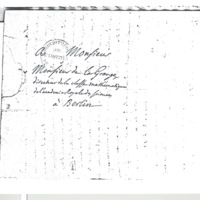 A Monsieur
Monsieur de la Grange
directeur de la classe mathematique
de l'academie Royale des sciences
à Berlin